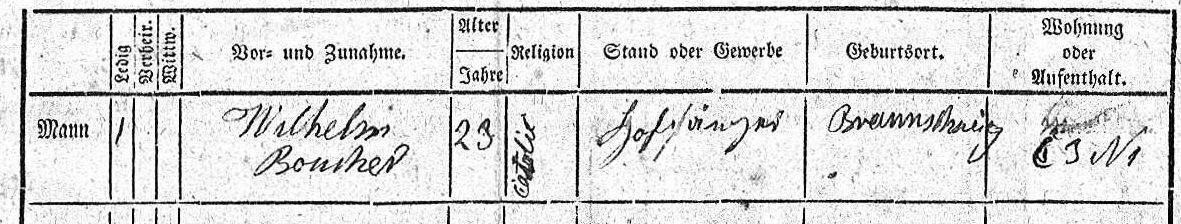 Ledig
Verheir.
Wittw.
Vor- und Zunahme.
Alter
Jahre
Religion
Stand oder Gewerbe
Geburtsort.
Wohnung
oder
Aufenthalt.
Mann 1 Wilhelm 23 Catolic Hofsänger Braunschweig
Boucher
C 3 N 1